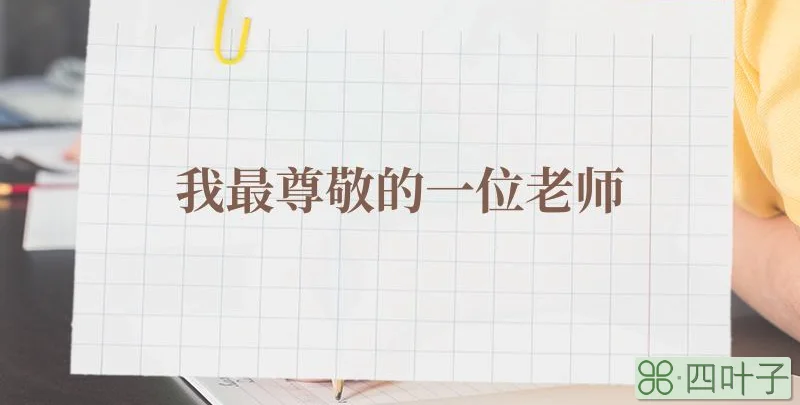 我最尊敬的一位老师
四叶子